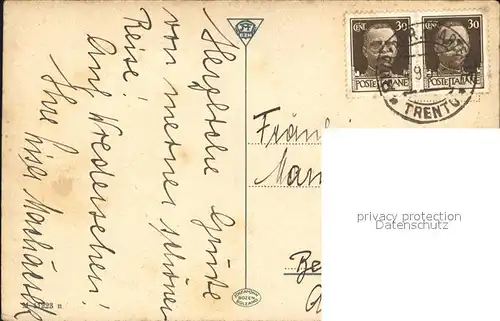 Herzliche Grüße
von meiner schönen
Reise!
Auf Wiedersehen!
Ihre Lisa
BZM
CENT. 30
POSTE ITALIANE
CENT. 30
POSTE ITALIANE
TRENTO
Fräul
Mar
Be
privacy protection
Datenschutz
BOZEN
BOLZANO
11223 n